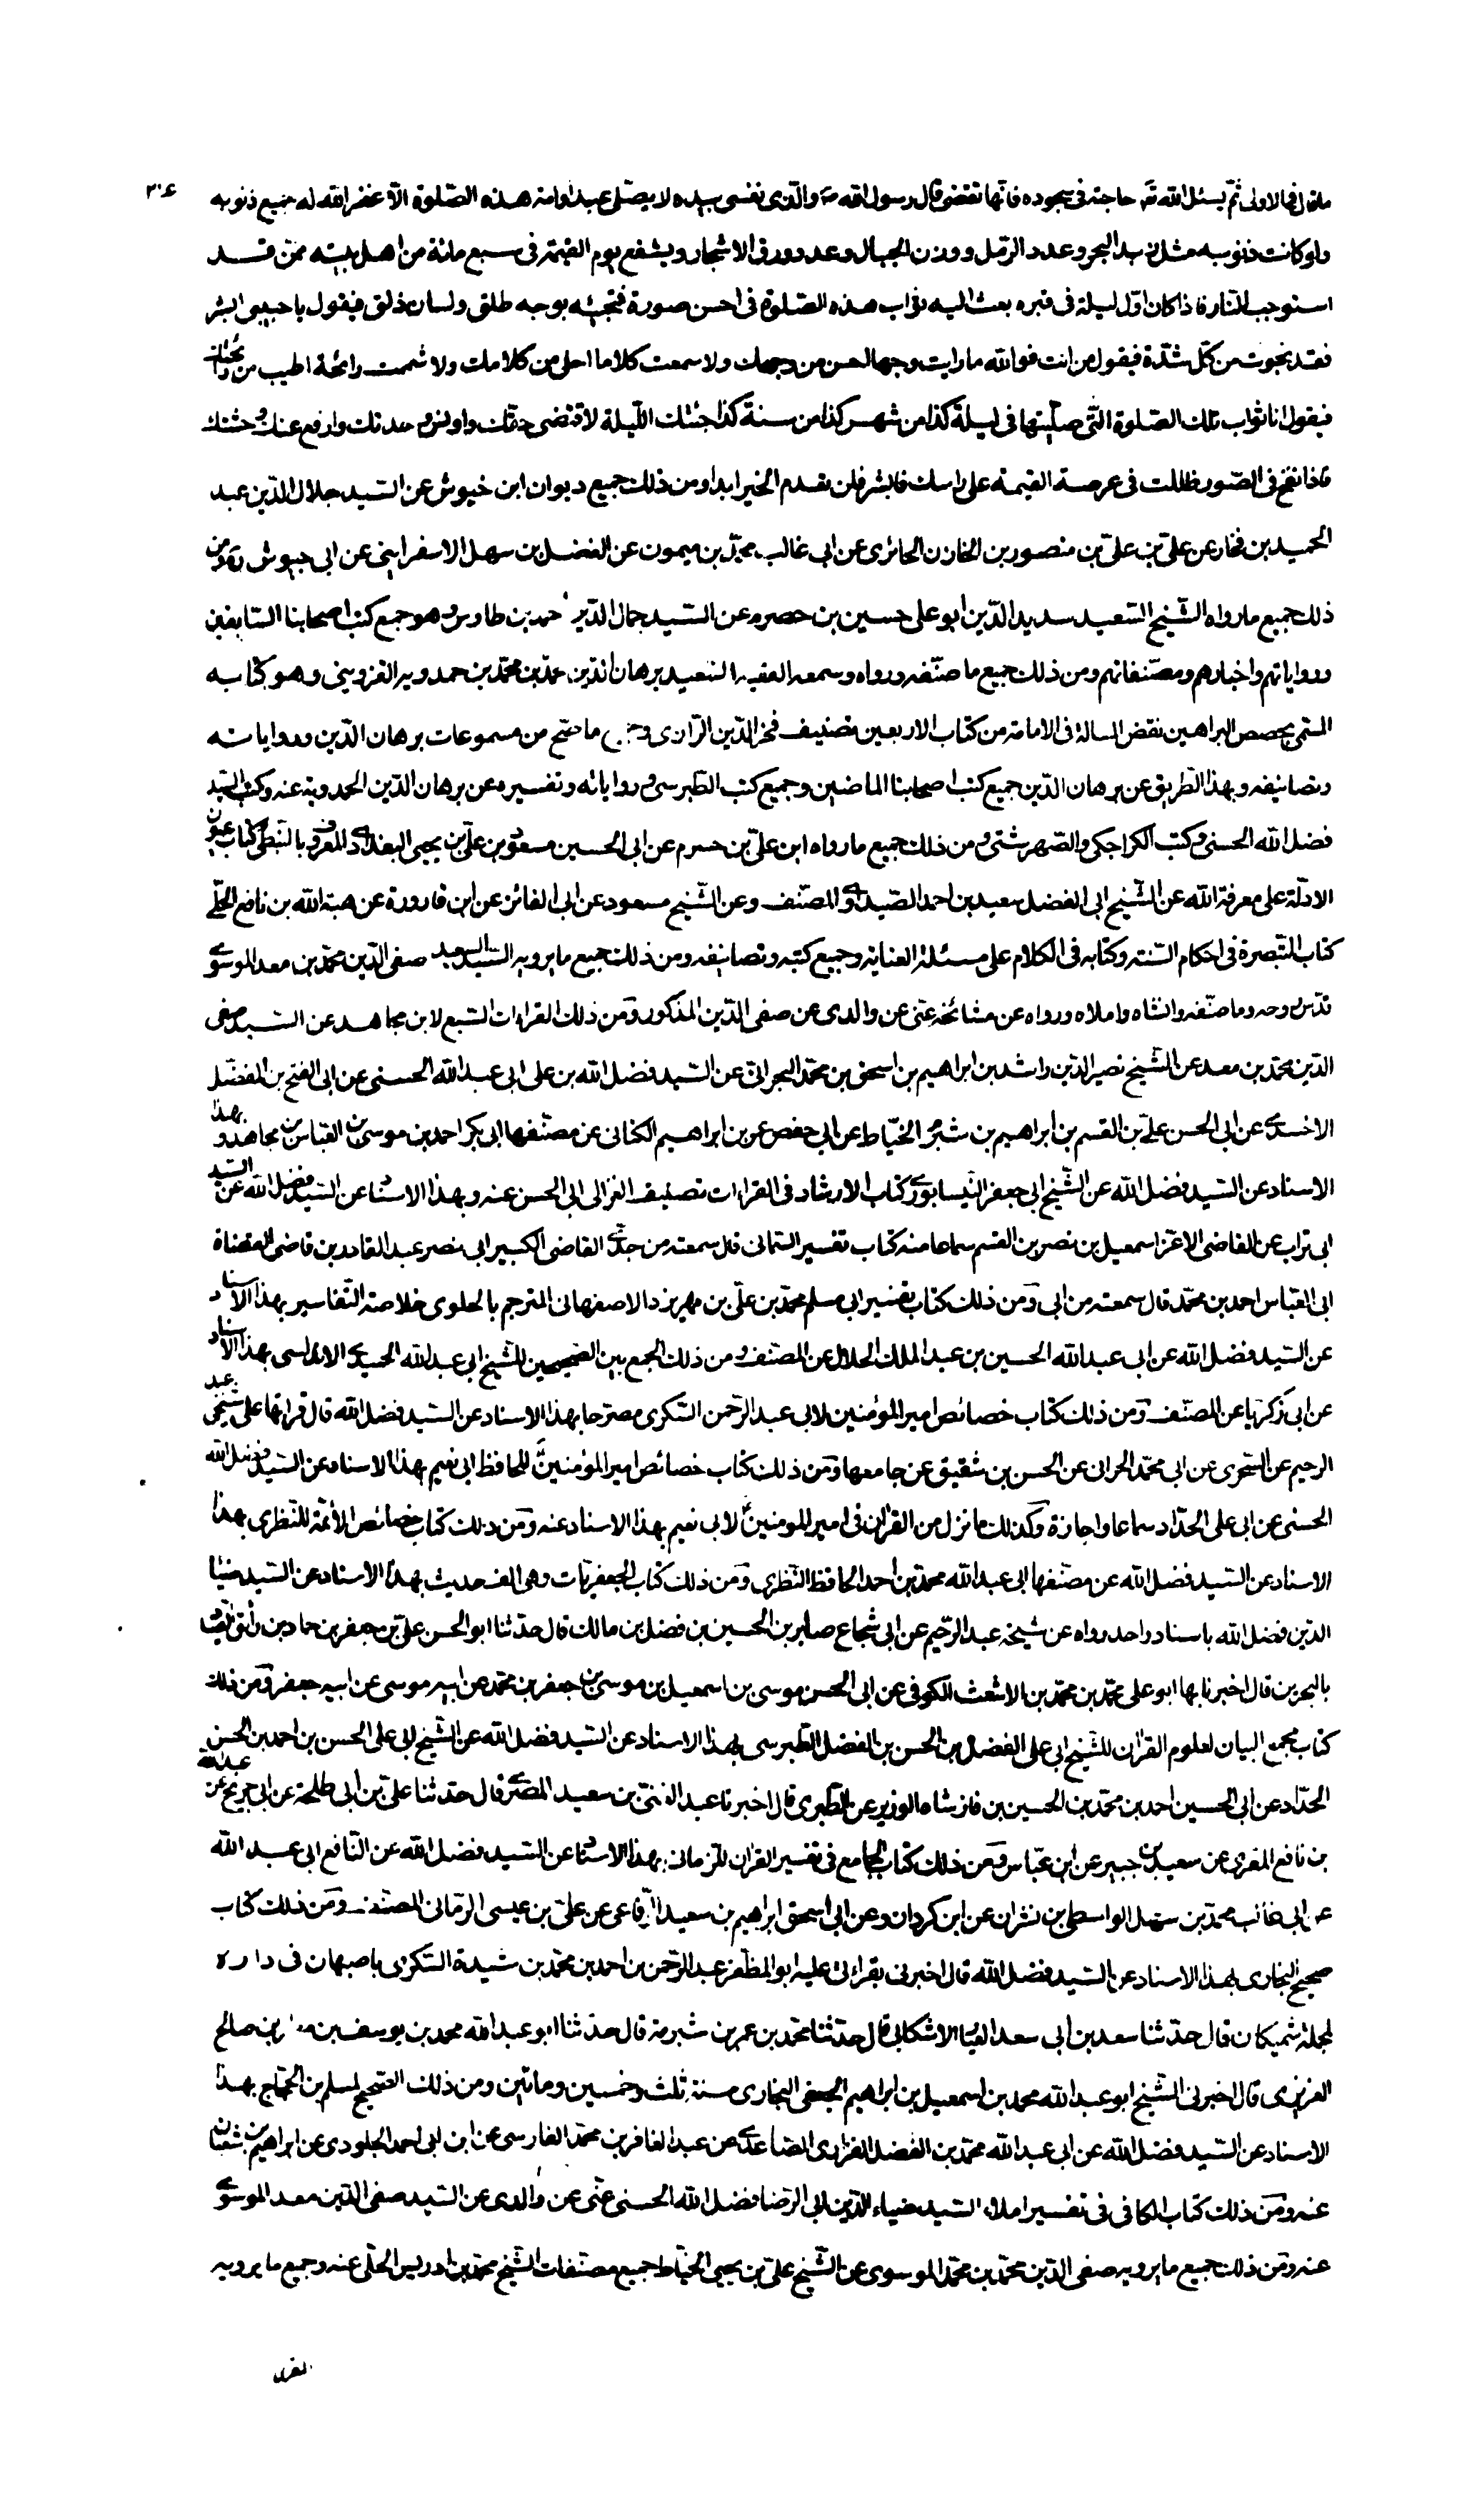 ما قال فى الاولى ثمّ يسئل الله تَم حاجته فى سجوده فانّها تقضى قال رسول الله صَم والّذى نفسى بيده لا يصلّى عبد او امة هذه الصّلوة الّا غفر الله له جميع ذنوبه
ولو كانت ذنوبه مثل زبد البحر وعدد الرّمل ووزن الجبال وعدد ورق الاشجار ويشفع يوم القيمة فى سبع مائة من اهل بيته ممّن قد
استوجب النّار فاذا كان اوّل ليلة فى قبره بعث اليه ثواب هذه الصّلوة فى احسن صورة فتجيئه بوجه طلق ولسان ذلق فيقول يا حبيبى ابشر
فقد نجوت من كلّ شدّة فيقول من انت فوالله ما رايت وجها احسن من وجهك ولا سمعت كلاما احلى من كلامك ولا شممت رائحة اطيب من رائحتك
فيقول انا ثواب تلك الصّلوة الّتى صلّيتها فى ليلة كذا من شهر كذا من سنة كذا جئتك اللّيلة لاقتضى حقّك واونس وحدتك وارفع عنك وحشتك
فاذا نفخ فى الصّور ظللت فى عرصة القيمة على راسك فابشر فلن تعدم الخير ابدا ومن ذلك جميع ديوان ابن خيوش عن السّيد جلال الدّين عبد
الحميد بن فخار عن علىّ بن علىّ بن منصور بن الخازن الحائرى عن ابى غالب محمّد بن ميمون عن الفضل بن سهل الاسفراينى عن ابى حيوش ومن
ذلك جميع ما رواه الشّيخ السّعيد سديد الدّين ابو على حسين بن خصرم عن السّيد جمال الدّين احمد بن طاوس وهو جميع كتب اصحابنا السّابقين
ورواياتهم واخبارهم ومصنّفاتهم ومن ذلك جميع ما صنّفه ورواه وسمعه الفقيه السّعيد برهان الدّين محمّد بن محمّد بن حمدويه القزوينى وهو كتابه
المسمّى بحصص البراهين نقض المسالة فى الامامة من كتاب الاربعين تصنيف فخر الدّين الرّازى وجميع ما صحّ من مسموعات برهان الدّين ورواياته
وتصانيفه وبهذا الطّريق عن برهان الدّين جميع كتب اصحابنا الماضين وجميع كتب الطّبرسى ورواياته وتفسيره عن برهان الدّين الحمدويه عنه وكتب السّيد
فضل الله الحسنى وكتب الكراجكى والصّهرشتى ومن ذلك جميع ما رواه ابن علىّ بن خسرم عن ابى الحسين مسعود بن علىّ بن يحيى البغدادى المعروف بالنّبطى كتاب عيون
الادلّة على معرفة الله عن الشّيخ ابى الفضل سعيد بن احمد الصّيداوى المصنّف وعن الشّيخ مسعود عن ابى الفائز عن ابن قارورة عن هبة الله بن نافع الحلّى
كتاب التّبصرة فى احكام السّنة وكتابه فى الكلام على مسئلة العناية وجميع كتبه وتصانيفه ومن ذلك جميع ما يرويه السّيد السعيد صفى الدّين محمّد بن معد الموسوى
قدّس روحه وما صنّفه وانشاه واملاه ورواه عن مشائخه عنّى عن والدى عن صفى الدّين المذكور ومن ذلك القراءات السّبع لابن مجاهد عن السّيد صفى
الدّين محمّد بن معد عن الشّيخ نصير الدّين راشد بن ابراهيم بن اسحق بن محمّد البحرانى عن السّيد فضل الله بن على ابى عبد الله الحسنى عن ابى الفتح بن الفضل
الاخسيدى عن ابى الحسن علىّ بن القسم بن ابراهيم بن شبر الخيّاط عن ابى حفص عمر بن ابراهيم الكنانى عن مصنّفها ابى بكر احمد بن موسى بن العبّاس بن مجاهد وبهذا
الاسناد عن السّيد فضل الله عن الشّيخ ابى جعفر النّيسابورى كتاب الارشاد فى القراءات تصنيف الغزالى ابى الحسن عنه وبهذا الاسناد عن السّيد فضل الله عن السّيد
ابى تراب عن القاضى الاعزّ اسمعيل بن نصر بن القسم سماعا منه كتاب تفسير السّمانى قال سمعته من جدّى القاضى الكبير ابى نصر عبد القادر بن قاضى القضاة
ابى العبّاس احمد بن محمّد قال سمعته من ابى ومن ذلك كتاب تفسير ابى مسلم محمّد بن علىّ بن مهريزد الاصفهانى المترجم بالحلوى خلاصة التّفاسير بهذا الاسناد
عن السّيد فضل الله عن ابى عبد الله الحسين بن عبد الملك الخلال عن المصنّف ومن ذلك الجمع بين الصّحيحين للشّيخ ابى عبد الله الحميدى الاندلسى بهذا الاسناد
عن ابى زكريّا عن المصنّف ومن ذلك كتاب خصائص امير المؤمنين لابى عبد الرّحمن السّكرى مصرّحا بهذا الاسناد عن السّيد فضل الله قال قراتها على شيخى عبد
الرحيم عن السّحرى عن ابى محمّد الحرانى عن الحسن بن شقيق عن جامعها ومن ذلك كتاب خصائص امير المؤمنينَ للحافظ ابى نعيم بهذا الاسناد عن السّيد فضل الله
الحسنى عن ابى على الحدّاد سماعا واجازة وكذلك ما نزل من القران فى امير المومنينَ لابى نعيم بهذا الاسناد عنه ومن ذلك كتاب خصائص الائمّة للنّطنزى بهذا
الاسناد عن السّيد فضل الله عن مصنّفها ابى عبد الله محمّد بن احمد الحافظ النّطنزى ومن ذلك كتاب الجعفريّات وهى الف حديث بهذا الاسناد عن السّيد ضياء
الدّين فضل الله باسناد واحد رواه عن شيخه عبد الرّحيم عن ابى شجاع صابر بن الحسين بن فضل بن مالك قال حدّثنا ابو الحسن علىّ بن جعفر بن حماد بن
بالبحرين قال اخبرنا بها ابو على محمّد بن محمّد بن الاشعث الكوفى عن ابى الحسن موسى بن اسمعيل بن موسى بن جعفر بن محمّد عن ابيه موسى عن ابيه جعفر ومن ذلك
كتاب مجمع البيان لعلوم القران للشّيخ ابى على الفضل بن الحسن بن الفضل الطّبرسى بهذا الاسناد عن السّيد فضل الله عن الشّيخ ابى على الحسن بن احمد بن الحسن
الحدّاد عن ابى الحسين احمد بن محمّد بن الحسين بن فاذشاه الوزير عن الطّبرى قال اخبرنا عبد الغنىّ بن سعيد المصرى قال حدّثنا علىّ بن ابى طلحة عن ابى جريح عن عبد الله
بن نافع المغربى عن سعيد بن جبير عن ابن عبّاس ومن ذلك كتاب الجامع فى تفسير القران للرّمانى بهذا الاسناد عن السّيد فضل الله عن النّافع ابى عبد الله
عن ابى غالب محمّد بن سهل الواسطى بن نشران عن ابن كردان وعن ابى اسحق ابراهيم بن سعيد الرّفاعى عن علىّ بن عيسى الرّمانى المصنّف ومن ذلك كتاب
صحيح البخارى بهذا الاسناد عن السّيد فضل الله قال اخبرنى بقراءتى عليه ابو المظفر عبد الرّحمن بن احمد بن محمّد بن شيدة السّكرى باصبهان فى داره
لمحلة شميكان قال حدّثنا سعد بن ابى سعد العيّار الاشكابى قال حدّثنا محمّد بن عمر بن شبرمة قال حدّثنا ابو عبد الله محمد بن يوسف بن بن صالح
الفربرى قال اخبرنى الشّيخ ابو عبد الله محمد بن اسمعيل بن ابراهيم الجعفى البخارى سنة ثلث وخمسين وماتين ومن ذلك الصّحيح لمسلم بن الحجّاج بهذا
الاسناد عن السّيد فضل الله عن ابى عبد الله محمّد بن الفضل الفراوى الصّاعدى عن عبد الغافر بن محمّد الفارسى عن ابن ابى احمد الجلودى عن ابراهيم بن
عنه ومن ذلك كتاب الكافى فى تفسير املاء السّيد ضياء الدّين ابى الرّضا فضل الله الحسنى عنّى عن والدى عن السّيد صفى الدّين معد الموسوى
عنه ومن ذلك جميع ما يرويه صفى الدّين محمّد بن محمّد الموسوى عن الشّيخ علىّ بن يحيى الخيّاط جميع مصنّفات الشّيخ محمّد بن ادريس الحلّى عنه وجميع ما يرويه